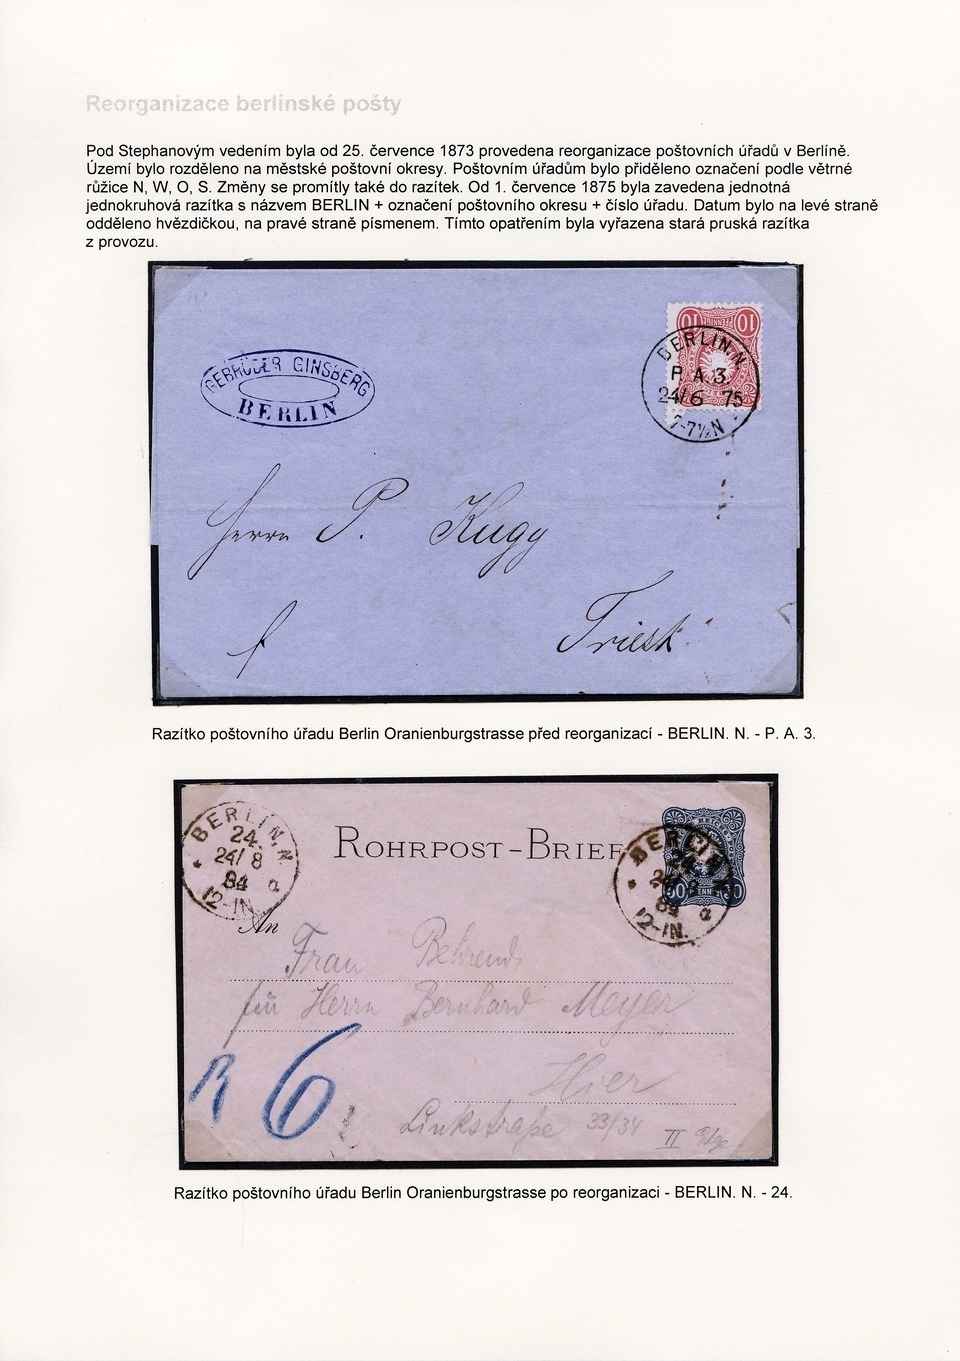 Reorganizace berlínské pošty
Pod Stephanovým vedením byla od 25. července 1873 provedena reorganizace poštovních úřadů v Berlíně.
Území bylo rozděleno na městské poštovní okresy. Poštovním úřadům bylo přiděleno označení podle větrné
růžice N, W, O, S. Změny se promítly také do razítek. Od 1. července 1875 byla zavedena jednotná
jednokruhová razítka s názvem BERLIN + označení poštovního okresu + číslo úřadu. Datum bylo na levé straně
odděleno hvězdičkou, na pravé straně písmenem. Tímto opatřením byla vyřazena stará pruská razítka
z provozu.
10 PFENNIGE 10
BERLIN.N.
P. A. 3.
24/6 75
7-7½N
GEBRÜDER GINSBERG
BERLIN
Herrn P. Kugy
Triest
Razítko poštovního úřadu Berlin Oranienburgstrasse před reorganizací - BERLIN. N. - P. A. 3.
BERLIN, N
24.
24/ 8
84 a
12-1N.
ROHRPOST-BRIEF
BERLIN, N
24.
24/ 8
84 a
12-1N.
An
Frau Behrends
für Herrn Bernhard Meyer
Hier
R 6
Linkstraße 33/34
II
Razítko poštovního úřadu Berlin Oranienburgstrasse po reorganizaci - BERLIN. N. - 24.